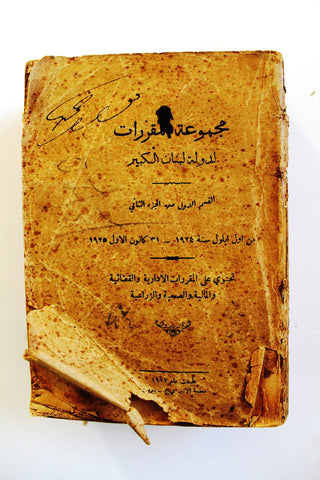 مجموعة المقررات
لدولة لبنان الكبير
القسم الاول من الجزء الثاني
من اول ايلول سنة ١٩٢٤ ــ ٣١ كانون الاول ١٩٢٥
تحتوي على المقررات الادارية والقضائية
والمالية والصحية والزراعية
طبعت